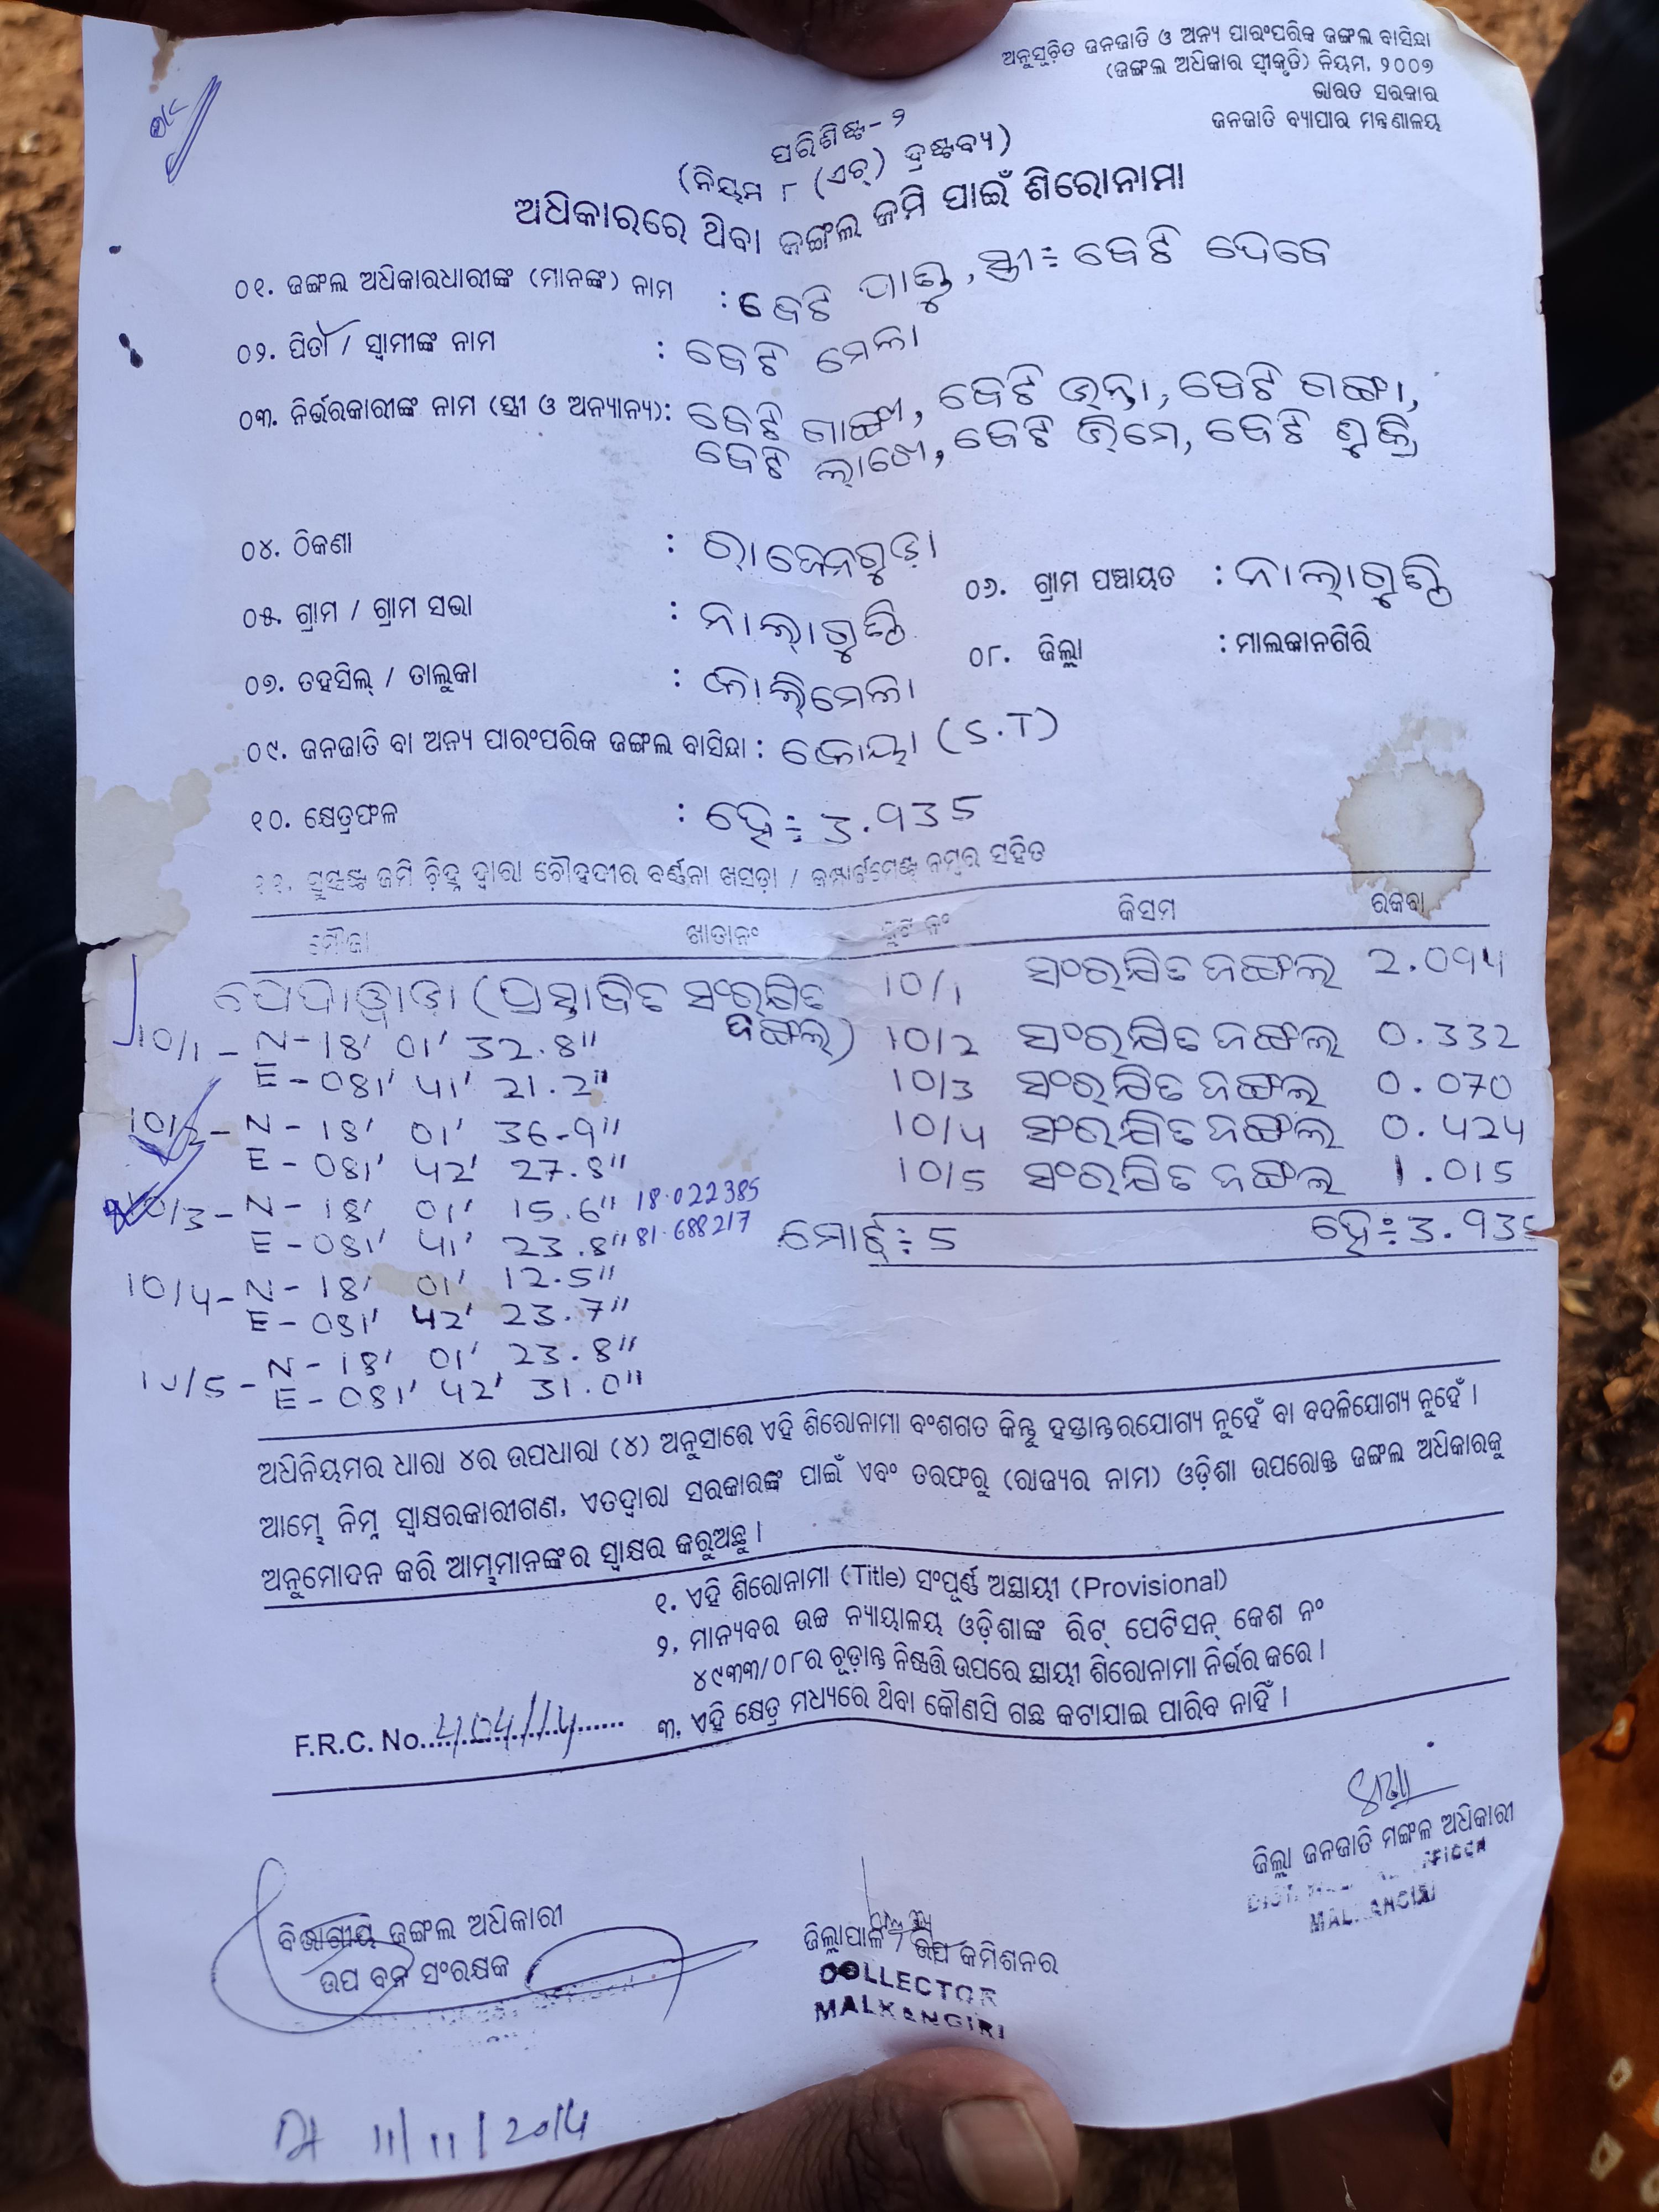 ଅନୁସୂଚିତ ଜନଜାତି ଓ ଅନ୍ୟ ପାରଂପରିକ ଜଙ୍ଗଲ ବାସିନ୍ଦା
(ଜଙ୍ଗଲ ଅଧିକାର ସ୍ୱୀକୃତି) ନିୟମ, ୨୦୦୭
ଭାରତ ସରକାର
ଜନଜାତି ବ୍ୟାପାର ମନ୍ତ୍ରଣାଳୟ
ପରିଶିଷ୍ଟ-୨
(ନିୟମ ୮ (ଏଚ୍) ଦ୍ରଷ୍ଟବ୍ୟ)
ଅଧିକାରରେ ଥିବା ଜଙ୍ଗଲ ଜମି ପାଇଁ ଶିରୋନାମା
୦୧. ଜଙ୍ଗଲ ଅଧିକାରଧାରୀଙ୍କ (ମାନଙ୍କ) ନାମ : ବେଟି ପାଣ୍ଡୁ, ସ୍ତ୍ରୀ÷ ବେଟି ଦେବେ
୦୨. ପିତା / ସ୍ୱାମୀଙ୍କ ନାମ : ବେଟି ମେଳା
୦୩. ନିର୍ଭରକାରୀଙ୍କ ନାମ (ସ୍ତ୍ରୀ ଓ ଅନ୍ୟାନ୍ୟ): ବେଟି ଗାଙ୍ଗୀ, ବେଟି ଉନ୍ତା, ବେଟି ଗଙ୍ଗା,
ବେଟି ଲାଖେ, ବେଟି ଭିମେ, ବେଟି
୦୪. ଠିକଣା : ରାଜେନଗୁଡ଼ା
୦୫. ଗ୍ରାମ / ଗ୍ରାମ ସଭା : ନାଲାଗୁଣ୍ଠି
୦୬. ଗ୍ରାମ ପଞ୍ଚାୟତ : ନାଲାଗୁଣ୍ଠି
୦୭. ତହସିଲ୍ / ତାଲୁକା : କାଲିମେଳା
୦୮. ଜିଲ୍ଲା : ମାଲକାନଗିରି
୦୯. ଜନଜାତି ବା ଅନ୍ୟ ପାରଂପରିକ ଜଙ୍ଗଲ ବାସିନ୍ଦା : କୋୟା (S.T)
୧୦. କ୍ଷେତ୍ରଫଳ : ହେ÷ 3.935
୧୧. ସୁସ୍ପଷ୍ଟ ଜମି ଚିହ୍ନ ଦ୍ୱାରା ଚୌହଦୀର ବର୍ଣ୍ଣନା ଖସଡ଼ା / କମ୍ପାର୍ଟମେଣ୍ଟ ନମ୍ବର ସହିତ
ମୌଜା ଖାତାନଂ ପ୍ଲଟ ନଂ କିସମ ରକବା
ପେଦାୱାଡା (ପ୍ରସ୍ତାବିତ ସଂରକ୍ଷିତ ଜଙ୍ଗଲ)
10/1 ସଂରକ୍ଷିତ ଜଙ୍ଗଲ 2.094
10/2 ସଂରକ୍ଷିତ ଜଙ୍ଗଲ 0.332
10/3 ସଂରକ୍ଷିତ ଜଙ୍ଗଲ 0.070
10/4 ସଂରକ୍ଷିତ ଜଙ୍ଗଲ 0.424
10/5 ସଂରକ୍ଷିତ ଜଙ୍ଗଲ 1.015
ମୋଟ୍÷ 5 ହେ÷ 3.935
10/1 - N - 18' 01' 32.8"
E - 081' 41' 21.2"
10/2 - N - 18' 01' 36.9"
E - 081' 42' 27.8"
10/3 - N - 18' 01' 15.6" 18.022385
E - 081' 41' 23.8" 81.688217
10/4 - N - 18' 01' 12.5"
E - 081' 42' 23.7"
10/5 - N - 18' 01' 23.8"
E - 081' 42' 31.0"
ଅଧିନିୟମର ଧାରା ୪ର ଉପଧାରା (୪) ଅନୁସାରେ ଏହି ଶିରୋନାମା ବଂଶଗତ କିନ୍ତୁ ହସ୍ତାନ୍ତରଯୋଗ୍ୟ ନୁହେଁ ବା ବଦଳିଯୋଗ୍ୟ ନୁହେଁ ।
ଆମ୍ଭେ ନିମ୍ନ ସ୍ୱାକ୍ଷରକାରୀଗଣ, ଏତଦ୍ୱାରା ସରକାରଙ୍କ ପାଇଁ ଏବଂ ତରଫରୁ (ରାଜ୍ୟର ନାମ) ଓଡ଼ିଶା ଉପରୋକ୍ତ ଜଙ୍ଗଲ ଅଧିକାରକୁ
ଅନୁମୋଦନ କରି ଆମ୍ଭମାନଙ୍କର ସ୍ୱାକ୍ଷର କରୁଅଛୁ ।
୧. ଏହି ଶିରୋନାମା (Title) ସଂପୂର୍ଣ୍ଣ ଅସ୍ଥାୟୀ (Provisional)
୨. ମାନ୍ୟବର ଉଚ୍ଚ ନ୍ୟାୟାଳୟ ଓଡ଼ିଶାଙ୍କ ରିଟ୍ ପେଟିସନ୍ କେଶ ନଂ
୪୯୩୩/୦୮ର ଚୂଡ଼ାନ୍ତ ନିଷ୍ପତ୍ତି ଉପରେ ସ୍ଥାୟୀ ଶିରୋନାମା ନିର୍ଭର କରେ ।
୩. ଏହି କ୍ଷେତ୍ର ମଧ୍ୟରେ ଥିବା କୌଣସି ଗଛ କଟାଯାଇ ପାରିବ ନାହିଁ ।
F.R.C. No. 4104/14
ବିଭାଗୀୟ ଜଙ୍ଗଲ ଅଧିକାରୀ
ଉପ ବନ ସଂରକ୍ଷକ
ଜିଲ୍ଲାପାଳ / ଉପ କମିଶନର
COLLECTOR
MALKANGIRI
ଜିଲ୍ଲା ଜନଜାତି ମଙ୍ଗଳ ଅଧିକାରୀ
MALKANGIRI
11/11/2014